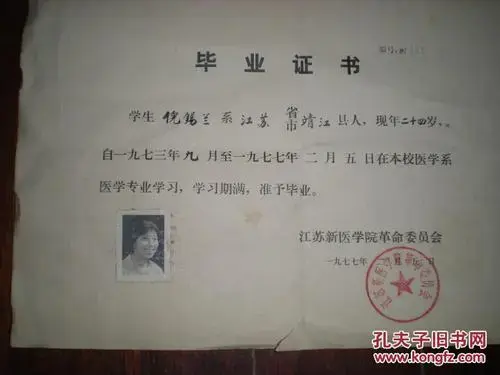 编号
毕业证书
学生 倪锡兰 系 江苏 省市 靖江 县人，现年二十四岁，
自一九七三年九月至一九七七年二月五日在本校医学系
医学专业学习，学习期满，准予毕业。
江苏新医学院革命委员会
一九七七年 月 日
江苏新医学院革命委员会
孔夫子旧书网
www.kongfz.com